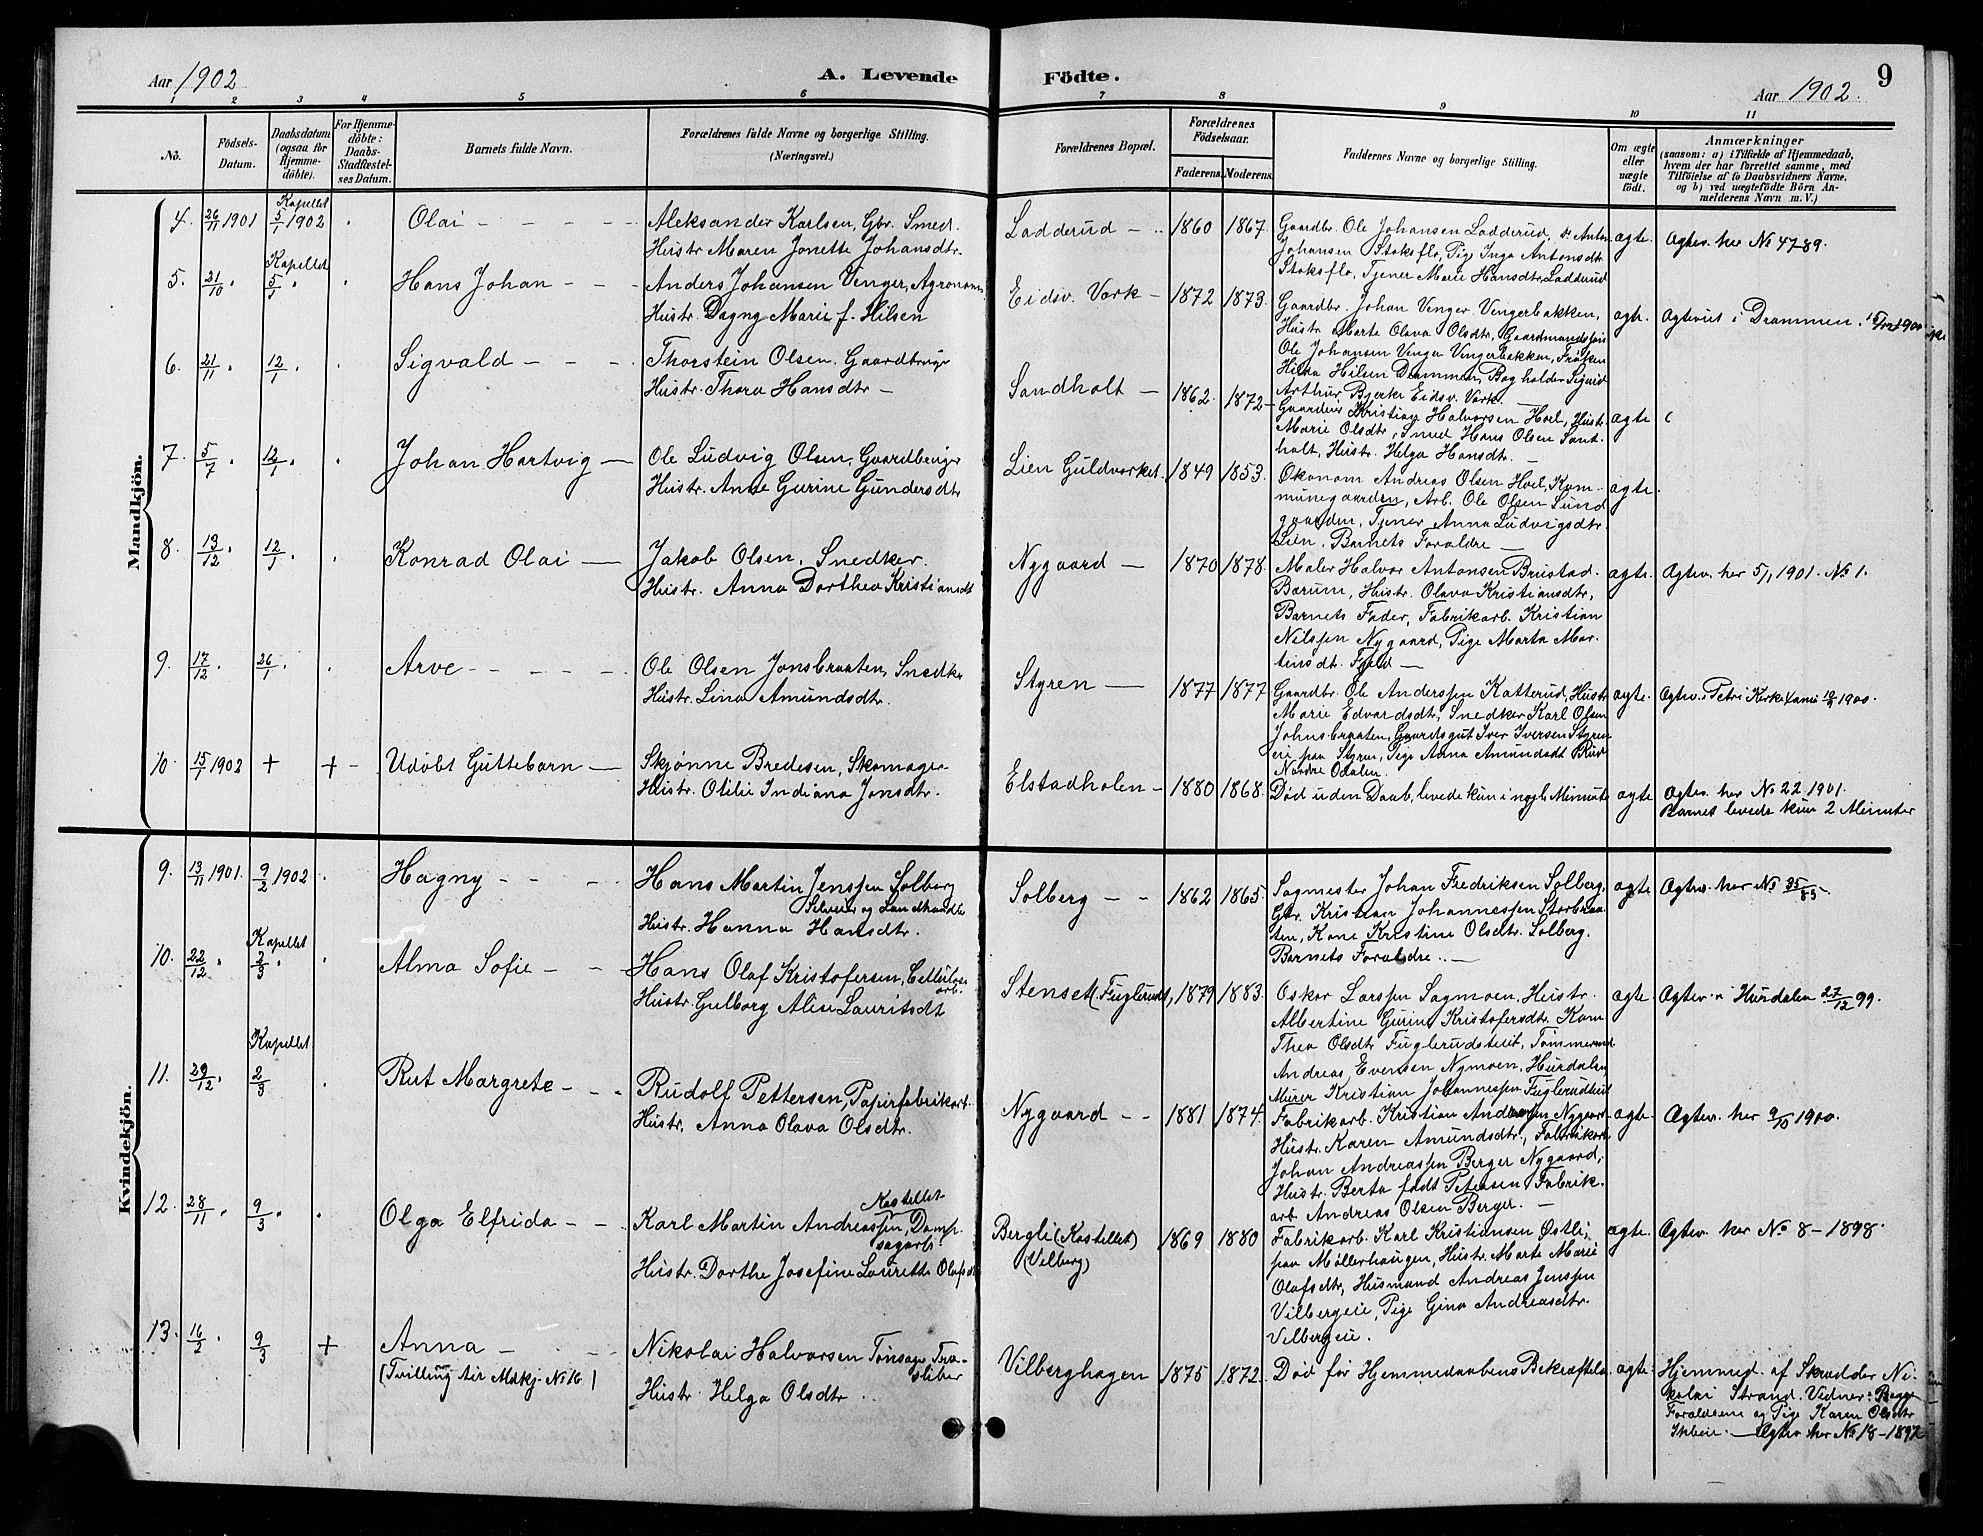 Aar 1902
A. Levende
Födte.
Aar 1902.
9
1 2 3 4 5 6 7 8 9 10 11
No.
Födsels-
Datum.
Daabsdatum
(ogsaa for
Hjemme-
döbte).
For Hjemme-
döbte:
Daabs-
Stadfæstel-
ses Datum.
Barnets fulde Navn.
Forældrenes fulde Navne og borgerlige Stilling.
(Næringsvei.)
Forældrenes Bopæl.
Forældrenes
Födselsaar.
Faderens. Moderens.
Faddernes Navne og borgerlige Stilling.
Om ægte
eller
uægte
födt.
Anmærkninger
(saasom: a) i Tilfælde af Hjemmedaab,
hvem der har forrettet samme, med
Tilföielse af to Daabsvidners Navne,
og b) ved uægtefödte Börn An-
melderens Navn m. V.)
Mandkjön.
4. 26/11 1901 Kapellet 5/1 1902 Olai
Aleksander Karlsen, Gbr. Smed.
Hustr. Maren Jonette Johansdtr.
Ladderud 1860 1867.
Gaardbr. Ole Johansen Ladderud, Anton
Johansen Stoksflo, Pige Inga Antonsdt.
Stoksflo, Tjener Marie Hansdtr. Ladderud
ægte. Ægtev. her No 47-89.
5. 21/10 Kapellet 5/1 Hans Johan
Anders Johansen Venger, Agronom
Hustr. Dagny Marie f. Hilsen
Eidsv. Værk 1872 1873.
Gaardbr. Johan Venger Vengerbakken,
Hustr. Marte Olava Olsdtr, Gaardmandssøn
Ole Johansen Venger Vengerbakken, Frøken
Hilda Hilsen Drammen, Bogholder Sigurd
Arthur Bjerke Eidsv. Værk.
ægte. Ægteviet i Drammen 1900
6. 21/11 12/1 Sigvald
Thorstein Olsen. Gaardbruger
Hustr. Thora Hansdtr
Sandholt 1862. 1872
Gaardeier Kristian Halvorsen Hoel, Hustr.
Marie Olsdtr, Smed Hans Olsen Sant-
holt, Hustr. Helga Hansdtr.
ægte
7. 5/7 12/1 Johan Hartvig
Ole Ludvig Olsen, Gaardbruger
Hustr. Anne Gurine Gundersdtr
Lien Guldværket. 1849 1853.
Økonom Andreas Olsen Hoel, Kom-
munegaarden, Arb. Ole Olsen Sund
gaarden, Tjener Anna Ludvigsdtr.
Lien. Barnets Forældre
ægte.
8. 13/12 12/1 Konrad Olai
Jakob Olsen, Snedker.
Hustr. Anna Dorthea Kristiansdt
Nygaard 1870 1878.
Maler Halvor Antonsen Brustad.
Bærum, Hustr. Olava Kristiansdtr,
Barnets Fader, Fabrikarb. Kristian
Nilssen Nygaard, Pige Marta Mar-
tinsdt. Fjeld
ægte. Ægtev. her 5/1 1901. No 1.
9. 17/12 26/1 Arve
Ole Olsen Jonsbraaten, Snedker
Hustr. Lina Amundsdtr.
Styren 1877 1877
Gaardbr. Ole Anderssen Katterud, Hustr
Marie Edvardsdtr, Snedker Karl Olsen
Johnsbraaten, Gaardsgut Iver Iversen Styren
eie paa Styren, Pige Anna Amundsdt Rud
Nordre Odalen.
ægte. Ægtev. i Petri Kirke 1900.
10. 15/1 1902 + + Udøbt Guttebarn
Skjønne Bredesen, Skomager
Hustr. Otilie Indiana Jonsdtr.
Elstadholen 1880 1868.
Død uden Daab, levede kun i nogle Minuter
ægte Ægtev. her No 22 1901.
Barnet levede kun 2 Minuter
Kvindekjön.
9. 13/11 1901. 9/2 1902 Hagny
Hans Martin Jenssen Solberg
Seleier og Landhandler
Hustr. Hanna Hansdtr.
Solberg 1862 1865.
Sagmester Johan Fredriksen Solberg.
Gbr. Kristian Johannessen Storbraa-
ten, Kone Kristine Olsdtr. Solberg.
Barnets Forældre
ægte Ægtev. her No 35/85
10. 22/12 Kapellet 2/3 Alma Sofie
Hans Olaf Kristofersen, Cellulose
arb.
Hustr. Gulborg Alise Lauritsdt
Stenset (Fuglerudst, 1879 1883.
Oskar Larssen Sagmoen, Hustr.
Albertine Gurine Kristofersdtr. Kam
Thea Olsdtr Fuglerudsteiet, Tømmermand
Andreas Evensen Nymoen, Hurdalen
Murer Kristian Johannessen Fuglerudteiet
ægte Ægtev. i Hurdalen 27/12 99.
11. 29/12 Kapellet 2/3 Rut Margrete
Rudolf Pettersen, Papirfabrikarb.
Hustr. Anna Olava Olsdtr.
Nygaard 1881 1874.
Fabrikarb. Kristian Andreassen Nygaard
Hustr. Karen Amundsdtr., Fabrikarb.
Johan Andreassen Berger Nygaard,
Hustr. Berta født Petersen, Fabrik.
arb Andreas Olsen Berger.
ægte. Ægtev. her 9/10 1900.
12. 28/11 9/3 Olga Elfrida
Kastellet
Karl Martin Andreassen, Damp
sagarb.
Hustr. Dorthe Josefine Laurette Olafsdt
Bergli (Kastellet)
(Vilberg)
1869 1880
Fabrikarb. Karl Kristiansen Østli,
paa Møllerhaugen, Hustr. Marte Marie
Olafsdtr, Husmand Andreas Jenssen
Vilbergeie, Pige Gina Andreasdtr.
Vilbergeie.
ægte. Ægtev. her No 8-1898.
13. 16/2 9/3 + Anna
(Tvilling til Mdkj. No 16)
Nikolai Halvorsen Tønsager, Træ-
sliber
Hustr. Helga Olsdtr
Vilberghagen 1875 1872.
Død før Hjemmedaabens Bekræftelse
ægte. Hjemmed. af Skrædder Ni-
kolai Strand. Vidner: Begge
Forældrene og Pige Karen Olsdtr
Ægtev. her No 18-1897